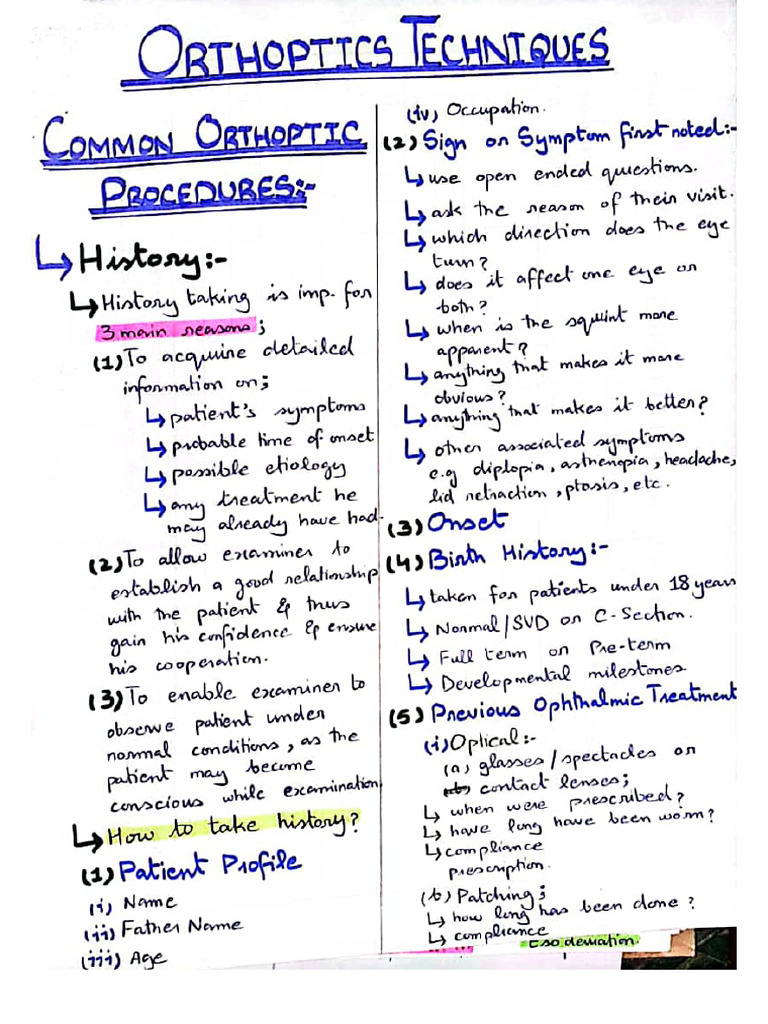 ORTHOPTICS TECHNIQUES
COMMON ORTHOPTIC
PROCEDURES:-
↳ History:-
↳ History taking is imp. for
3 main reasons;
(1) To acquire detailed
information on;
↳ patient's symptoms
↳ probable time of onset
↳ possible etiology
↳ any treatment he
may already have had.
(2) To allow examiner to
establish a good relationship
with the patient & thus
gain his confidence & ensure
his cooperation.
(3) To enable examiner to
observe patient under
normal conditions, as the
patient may become
conscious while examination
↳ How to take history?
(1) Patient Profile
(i) Name
(ii) Father Name
(iii) Age
(iv) Occupation.
(2) Sign or Symptom first noted:-
↳ use open ended questions.
↳ ask the reason of their visit.
↳ which direction does the eye
turn?
↳ does it affect one eye or
both?
↳ when is the squint more
apparent?
↳ anything that makes it more
obvious?
↳ anything that makes it better?
↳ other associated symptoms
e.g diplopia, asthenopia, headache,
lid retraction, ptosis, etc.
(3) Onset
(4) Birth History:-
↳ taken for patients under 18 years
↳ Normal/SVD or C-Section.
↳ Full term or Pre-term
↳ Developmental milestones
(5) Previous Ophthalmic Treatment
(i) Optical:-
(a) glasses/spectacles or
contact lenses;
↳ when were prescribed?
↳ have long have been worn?
↳ compliance
prescription.
(b) Patching;
↳ how long has been done?
↳ compliance
Eso deviation.